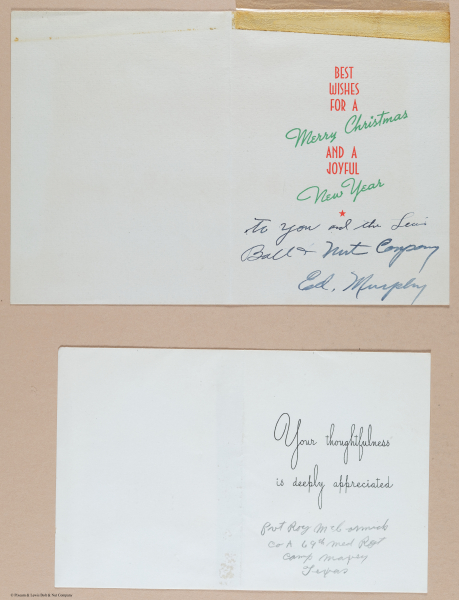 BEST
WISHES
FOR A
Merry Christmas
AND A
JOYFUL
New Year
to you and the Lewis
Bolt & Nut Company
Ed. Murphy
Your thoughtfulness
is deeply appreciated
Pvt Roy McCormick
Co A 69th Med Regt
Camp Maxey
Texas
© Pinson & Lewis Bolt & Nut Company